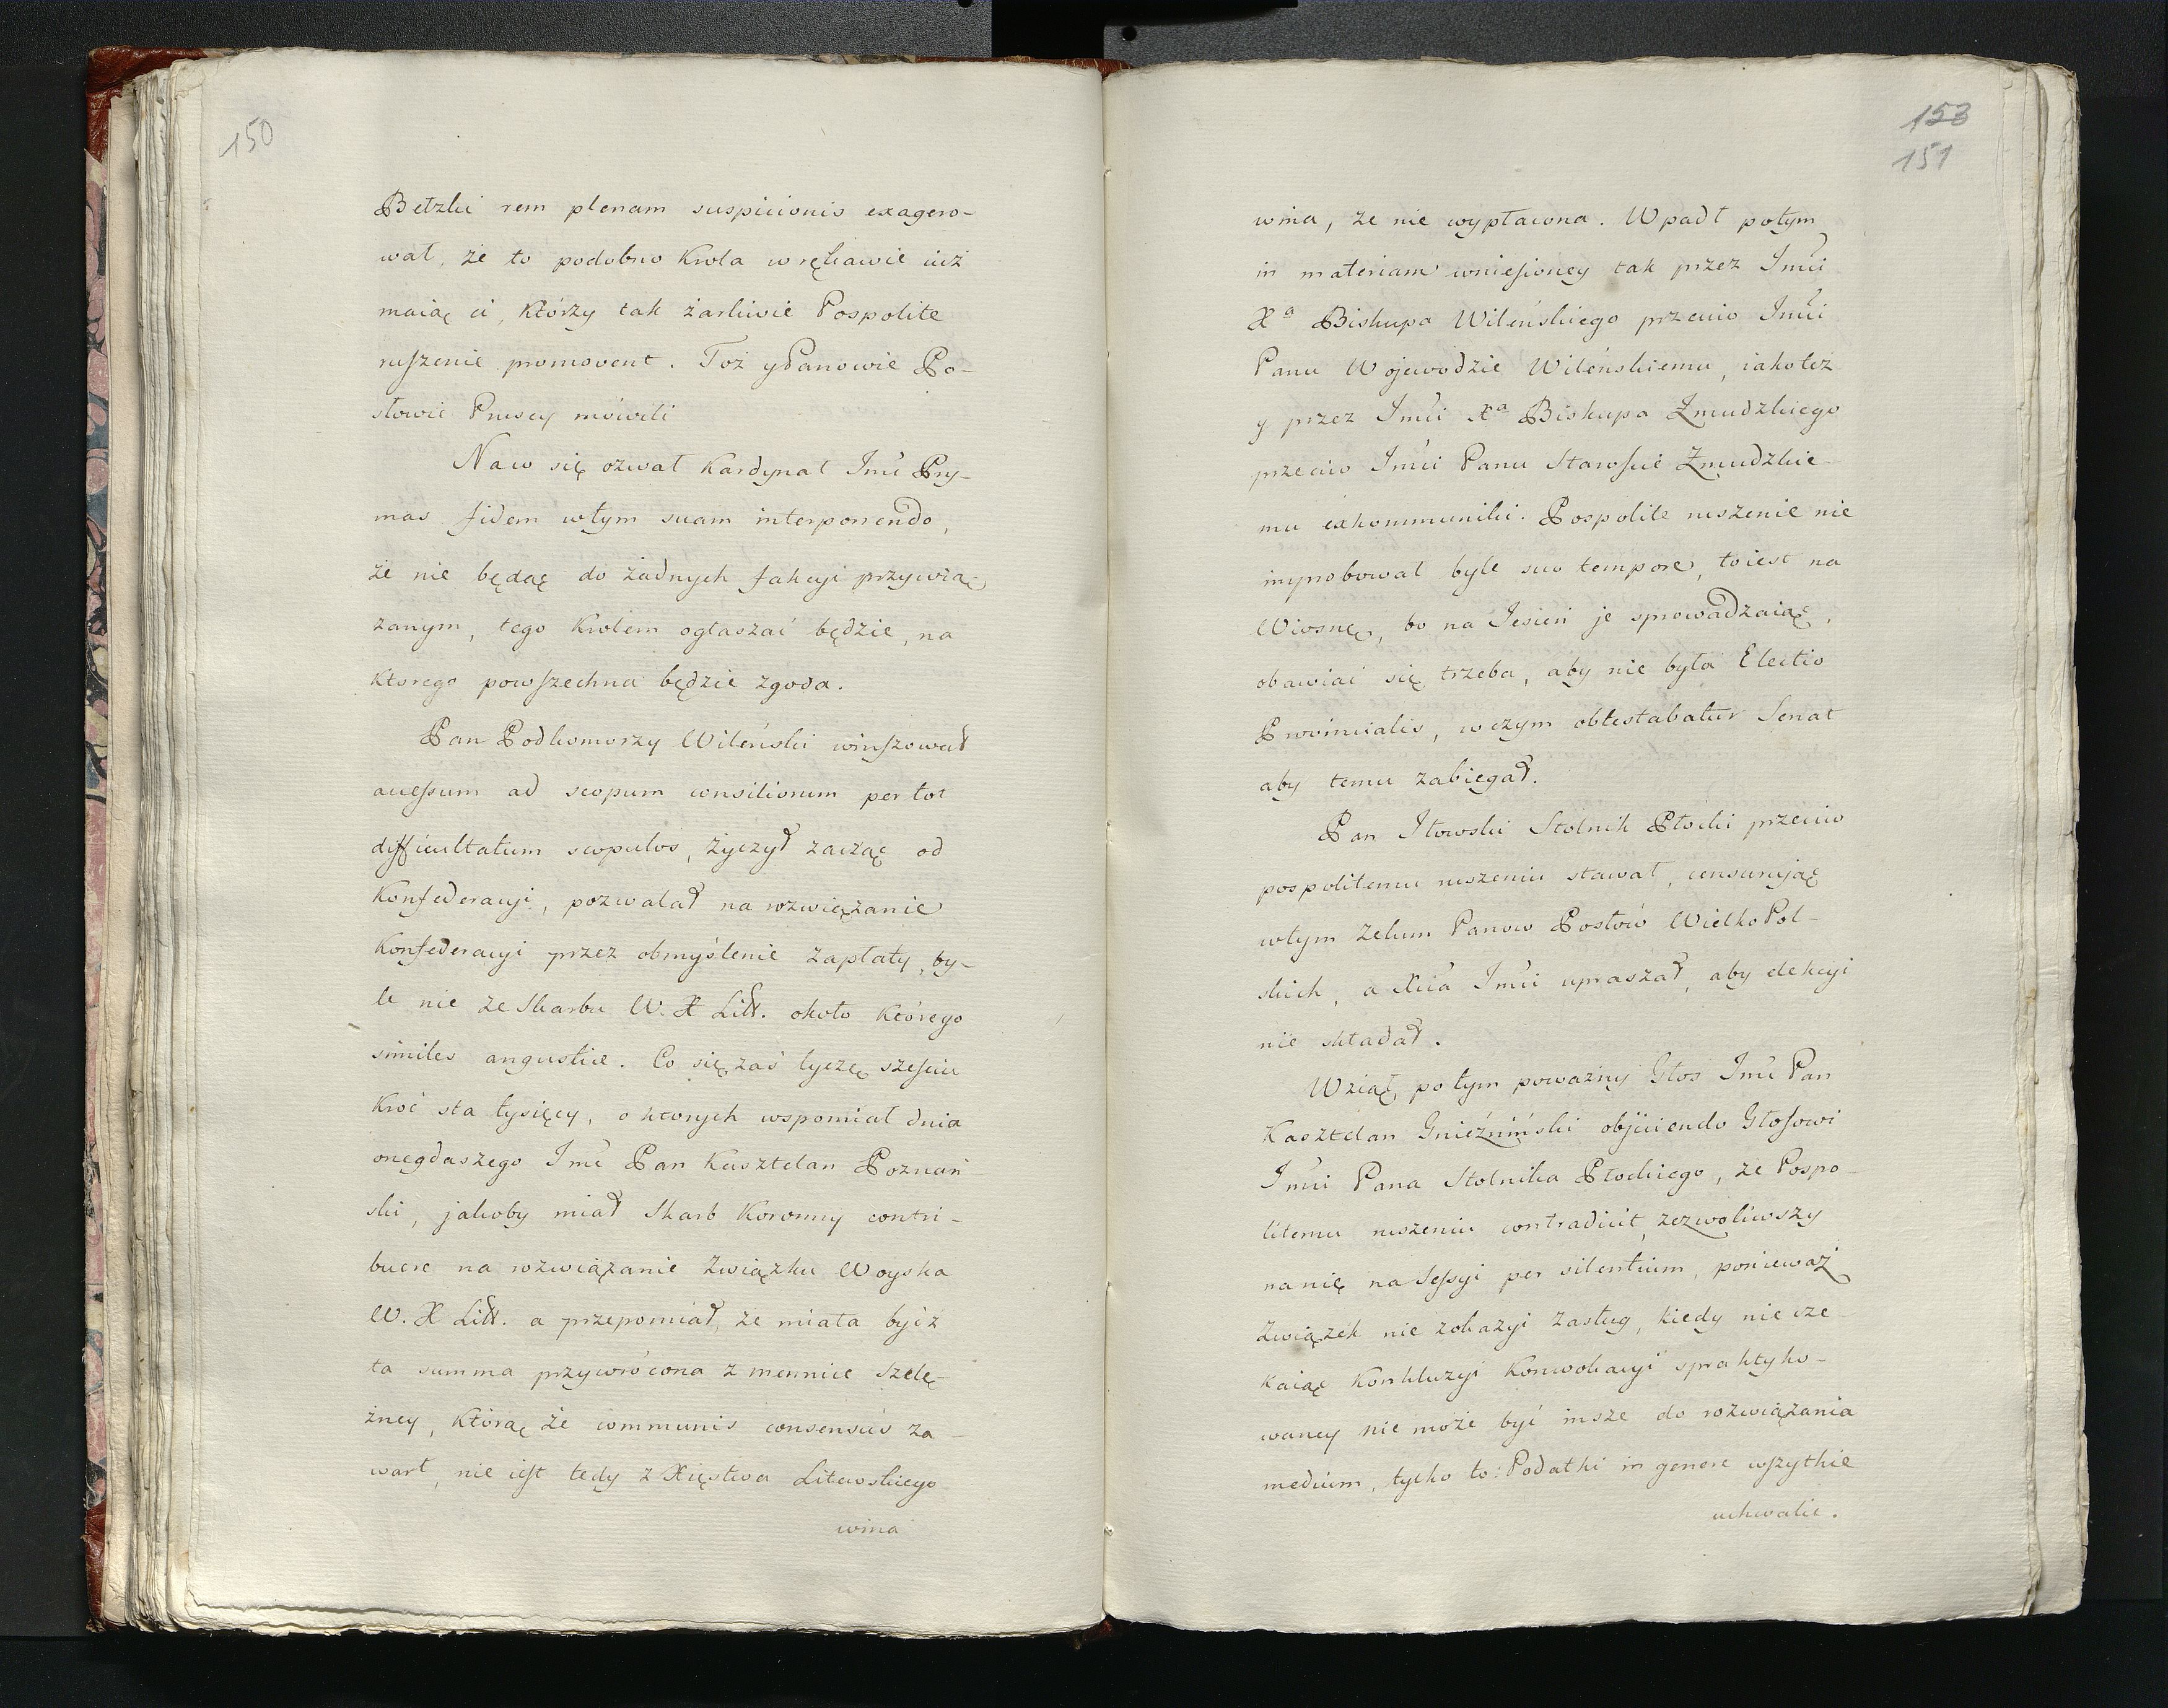 150
Betzki rem plenam suspicionis exagero-
wał, że to podobno Krola w rękawie iuż
maią ci, Którzy tak żarliwie Pospolite
ruszenie promovent. Toż y Panowie Po-
słowie Pruscy mówili
Na co się ozwał Kardynał Jmć Pry-
mas fidem w tym suam interponendo,
że nie będąc do żadnych fakcyi przywią
zanym, tego Krolem ogłaszać będzie, na
Ktorego powszechna będzie zgoda.
Pan Podkomorzy Wileński winszował
accessum ad scopum consiliorum per tot
difficultatum scopulos, życzył zacząć od
Konfederacyi, pozwalał na rozwiązanie
Konfederacyi przez obmyślenie zapłaty, by-
le nie ze Skarbu W. X Litt. około Którego
similes angustiæ. Co się zaś tyczę sześciu
Kroć sta tysięcy, o ktorych wspomiał dnia
onegdaszego Jmć Pan Kasztelan Poznań
ski, jakoby miał Skarb Koronny contri-
buere na rozwiązanie Związku Woyska
W. X Litt. a przepomiał, że miała być z
ta summa przywrócona z mennice Szelę-
żney, Którą że communis consensus za-
warł, nie iest tedy z Xięstwa Litewskiego
wina
153
151
wina, że nie wypłacona. Wpadł potym
in materiam wniesioney tak przez Jmći
Xa Biskupa Wileńskiego przeciw Jmći
Panu Wojewodzie Wileńskiemu, iakoteż
y przez Jmći Xa Biskupa Żmudzkiego
przeciw Jmći Panu Staroście Żmudzkie-
mu exkommuniki. Pospolite ruszenie nie
improbował byle suo tempore, to iest na
Wiosnę, bo na Jesień je sprowadzaiąc,
obawiać się trzeba, aby nie była Electio
Provincialis, w czym obtestabatur Senat
aby temu zabiegał.
Pan Iłowski Stolnik Płocki przeciw
pospolitemu ruszeniu stawał, censurując
w tym zelum Panow Posłów WielkoPol-
skich, a Xcia Jmći upraszał, aby elekcyi
nie składał.
Wziął, po tym poważny Głos Jmć Pan
Kasztelan Gnieźniński objiciendo Głosowi
Jmći Pana Stolnika Płockiego, że Pospo-
litemu ruszeniu contradicit, zezwoliwszy
na nię na Sessyi per silentium, ponieważ
Związek nie z okazyi Zasług, kiedy nie cze-
kaiąc Konkluzyi Konwokacyi spraktyko-
waney nie może być insze do rozwiązania
medium, tylko to: Podatki in genere wszytkie
uchwalić.